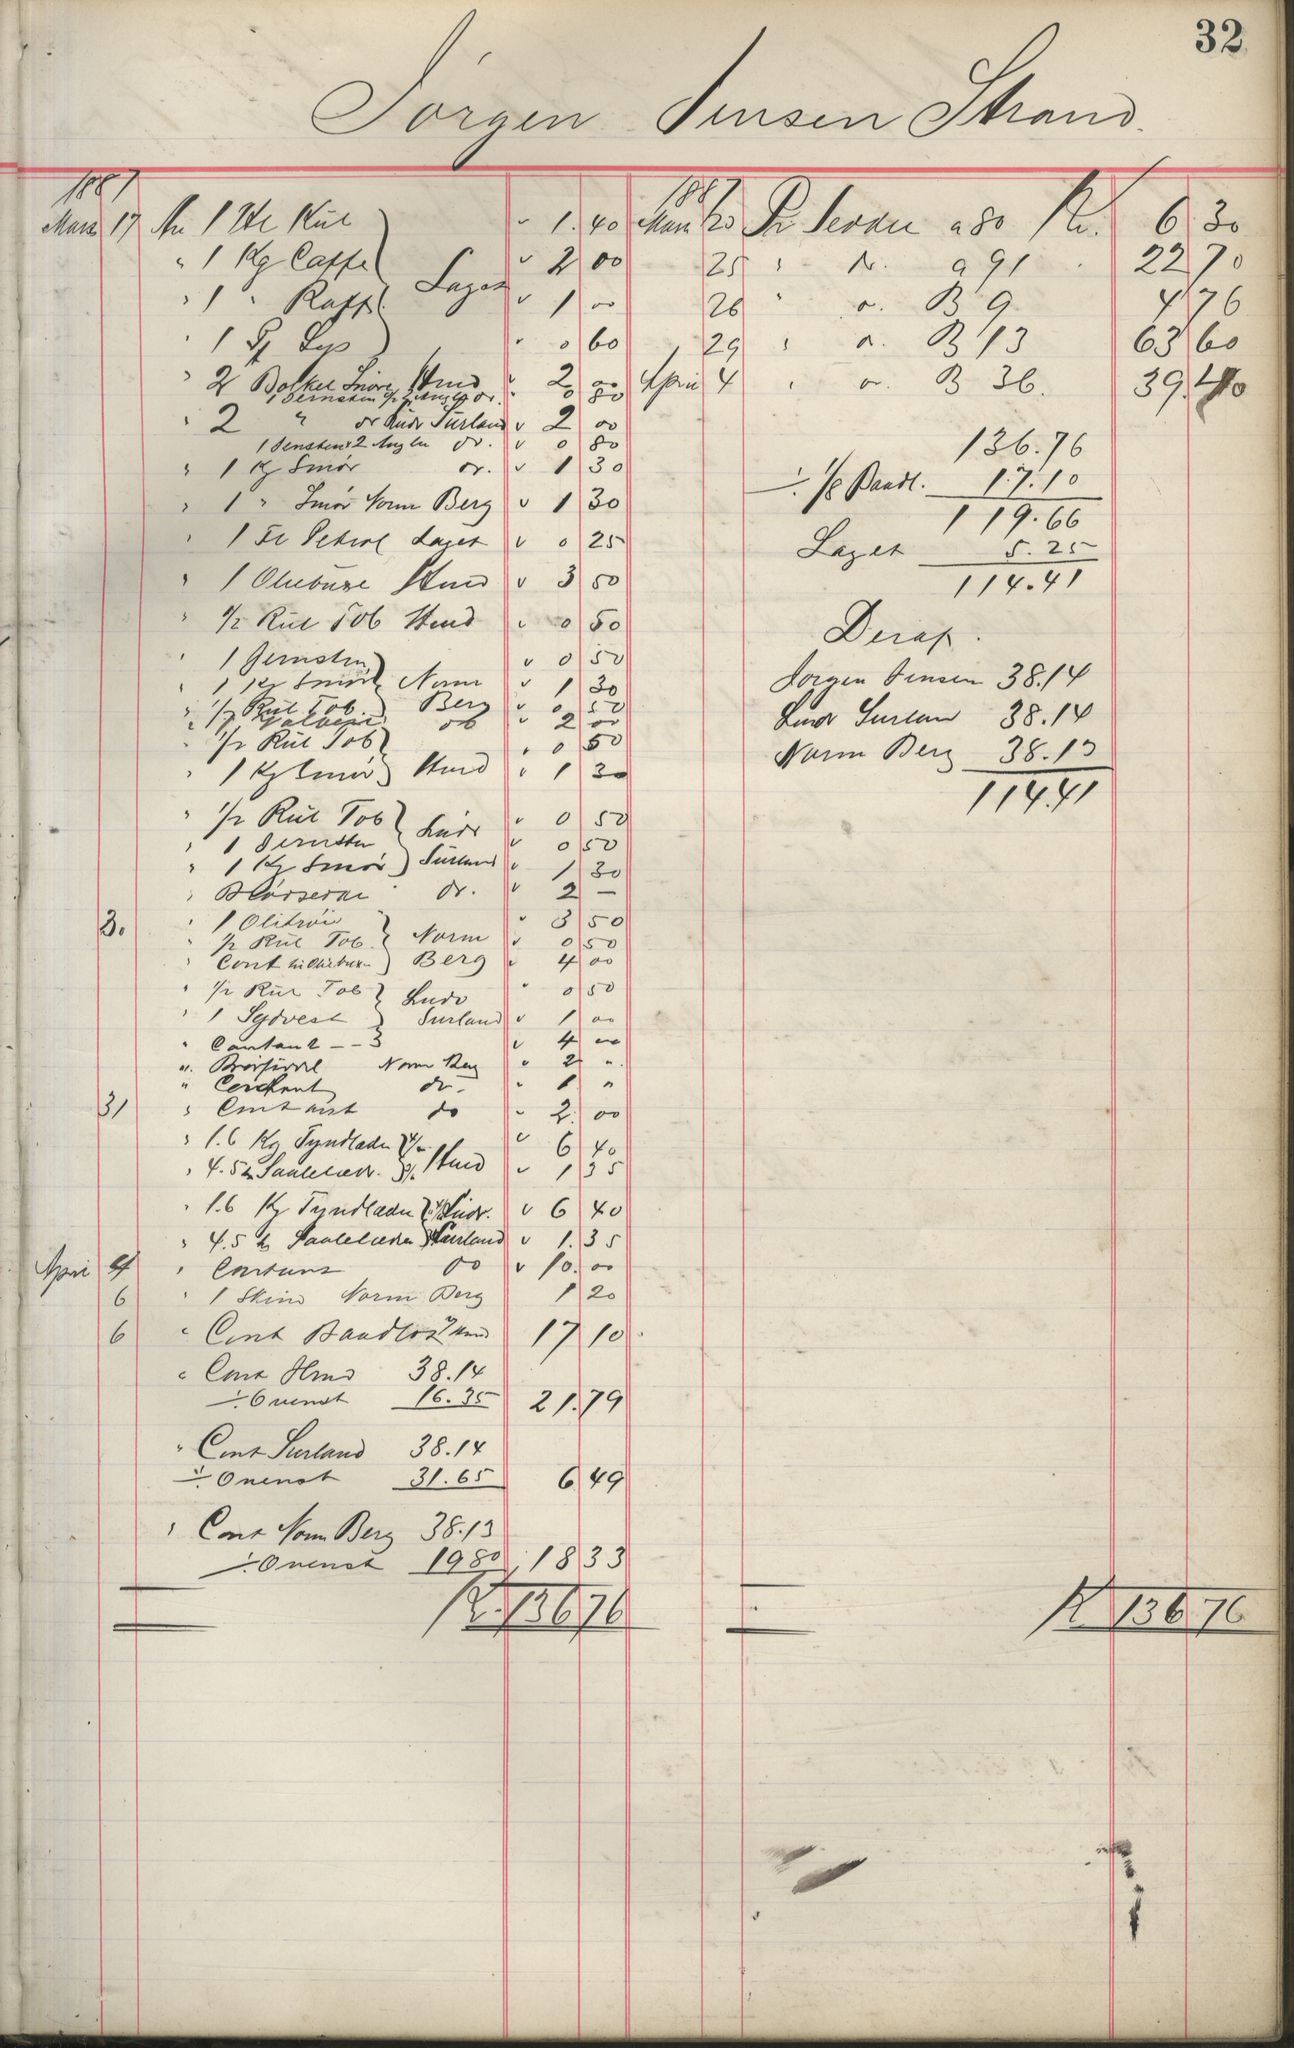 32
Jørgen Jensen Strand.
1887
Mars 17 An 1 Hl Kul 1.40
" 1 Kg Caffe 2 00
Laget
" 1 " Kaff 1 00
" 1 Lys 0 60
" 2 Snøre Hmd 2 00
1 Jernsten 2 Angler do. 0 80
" 2 " do Ludv Surland 2 00
1 Jensten 2 Angler do. 0 80
" 1 Kg Smør do. 1 30
" 1 " Smør Norm Berg 1 30
" 1 Fl Petrol Laget 0 25
" 1 Oliebuxe Hmd 3 50
" 1/2 Rul Tob Hmd 0 50
" 1 Jernsten 0 50
" 1 Kg Smør Norm 1 30
" 1/2 Rul Tob. Berg 0 50
" do 2 00
" 1/2 Rul Tob 0 50
" 1 Kg Smør Hmd 1 30
" 1/2 Rul Tob 0 50
Ludv
" 1 Jernsten 0 50
" 1 Kg Smør Surland 1 30
" do. 2 —
30 " 1 Olitrøie 3 50
" 1/2 Rul Tob. Norm 0 50
" Cont til Oliebuxe Berg 4 00
" 1/2 Rul Tob Ludv 0 50
" 1 Sydvest Surland 1 00
" Contant -- 3 4 00
" Norm Berg 2 "
" Contant do. 1 "
31 " Contant do 2.00
" 1.6 Kg Tyndlæder 4/- 6 40
" 4.5 h Saalelæder 3/- Hmd 1 35
" 1.6 Kg Tyndlæder Ludv. 6 40
" 4.5 h Saalelæder Surland 1.35
April 4 " Contant do 10.00
6 " 1 Skind Norm Berg 1 20
6 " Cont Baadlod Hmd 17 10
" Cont Hmd 38.14
÷ Ovenst 16.35 21.79
" Cont Surland 38.14
÷ Ovenst 31.65 6 49
" Cont Norm Berg 38.13
÷ Ovenst 19 80 18 33
K. 136 76
1887
Mars 20 Pr Seddel a 80 Kr. 6 30
25 " do. a 91 22 70
26 " do. B 9 4 76
29 " do. B 13 63 60
April 4 " do. B 36. 39.40
136.76
÷ 1/8 Baadl. 17.10
119.66
Laget 5.25
114.41
Deraf.
Jørgen Jensen 38.14
Ludv Surlan 38.14
Norm Berg 38.13
114.41
K 136 76